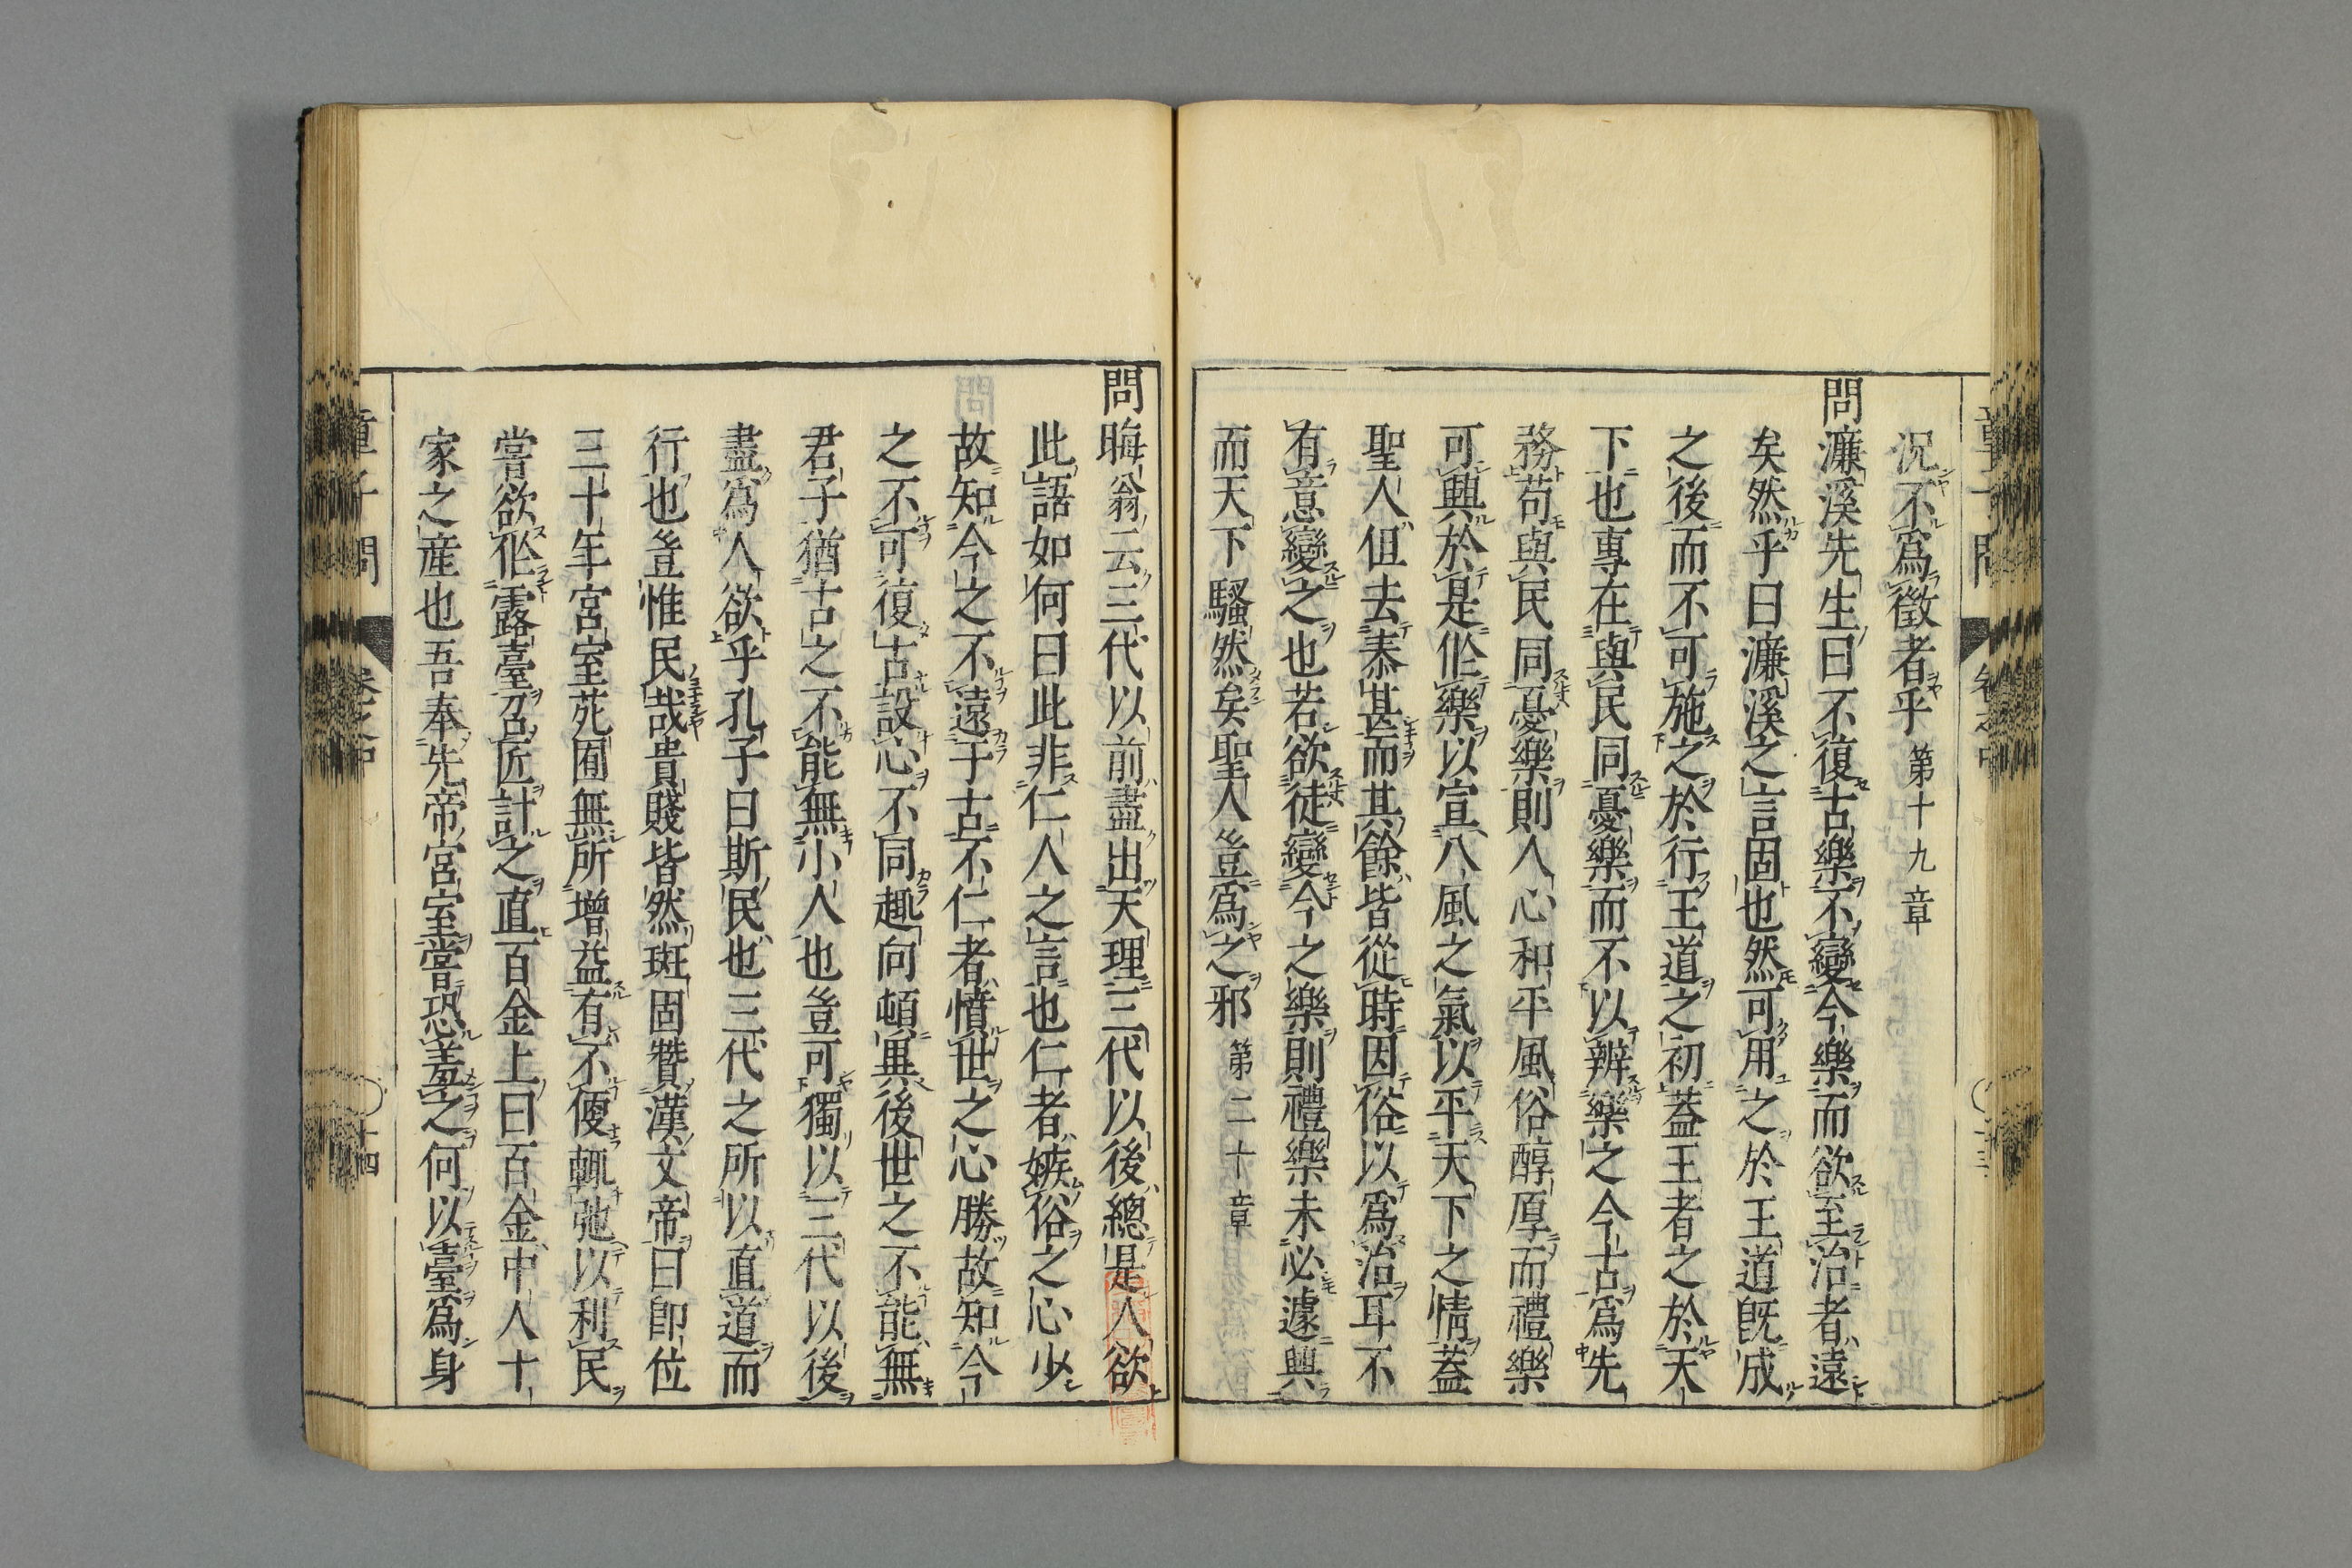 況不爲徵者乎 第十九章
問濂溪先生曰不復古樂不變今樂而欲至治者遠
矣然乎曰濂溪之言固也然可用之於王道既成
之後而不可施之於行王道之初蓋王者之於天
下也專在與民同憂樂而不以辨樂之今古爲先
務苟與民同憂樂則人心和平風俗醇厚而禮樂
可興於是作樂以宣八風之氣以平天下之情蓋
聖人但去泰甚而其餘皆從時因俗以爲治耳不
有意變之也若欲徒變今之樂則禮樂未必遽興
而天下騷然矣聖人豈爲之邪 第二十章
問晦翁云三代以前盡出天理三代以後總是人欲
此語如何曰此非仁人之言也仁者嫉俗之心少
故知今之不遠于古不仁者憤世之心勝故知今
之不可復古設心不同趣向頓異後世之不能無
君子猶古之不能無小人也豈可獨以三代以後
盡爲人欲乎孔子曰斯民也三代之所以直道而
行也豈惟民哉貴賤皆然班固贊漢文帝曰即位
三十年宮室苑囿無所增益有不便輒弛以利民
嘗欲作露臺召匠計之直百金上曰百金中人十
家之產也吾奉先帝宮室嘗恐羞之何以臺爲身
童子問 卷之中 十四